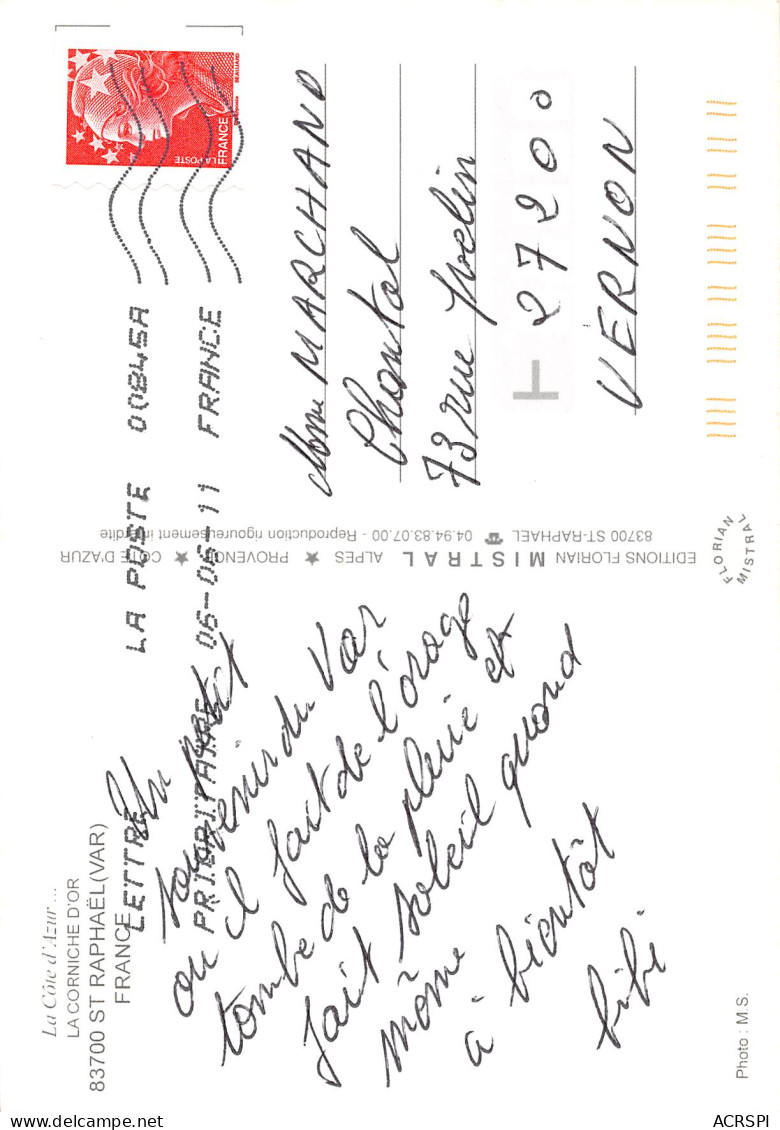 La Côte d'Azur ...
LA CORNICHE D'OR
83700 ST RAPHAËL (VAR)
FRANCE
LETTRE LA POSTE 00845A
PRIORITAIRE 06-06-11 FRANCE
Un petit
souvenir du Var
ou il fait de l'orage
tombe de la pluie et
fait soleil quand
même
à bientôt
bibi
EDITIONS FLORIAN MISTRAL ALPES ★ PROVENCE ★ COTE D'AZUR
83700 ST-RAPHAEL ☎ 04.94.83.07.00 - Reproduction rigoureusement interdite
FLORIAN
MISTRAL
LA POSTE
FRANCE
Mme MARCHAND
Chantal
73 rue Yvelin
27200
VERNON
Photo : M.S.
ACRSPI